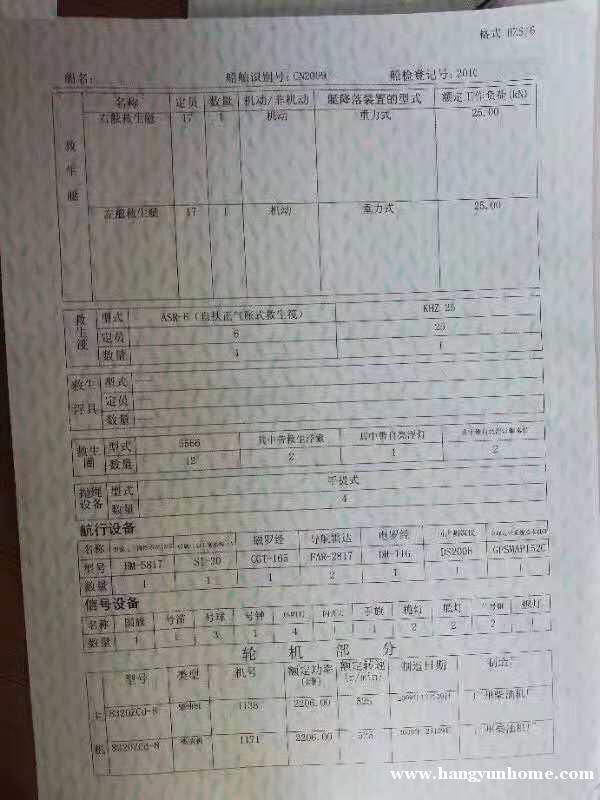 格式 HZS/6
船名: 船舶识别号: CN2009 船检登记号: 2010
救生艇 名称 定员 数量 机动/非机动 艇降落装置的型式 额定工作负荷(kN)
右舷救生艇 17 1 机动 重力式 25.00
左舷救生艇 17 1 机动 重力式 25.00
救生筏 型式 ASR-6(自扶正气胀式救生筏) KHZ 25
定员 6 25
数量 1
救生浮具 型式
定员
数量
救生圈 型式 5566 其中带救生浮索 其中带自亮浮灯
数量 12 2 1 2
抛绳设备 型式 手提式
数量 4
航行设备
名称 磁罗经 导航雷达 电罗经
型号 HM-5817 ST-20 CGT-165 FAR-2817 DS2008 GPSMAP152C
数量 1 1 1 2 1
信号设备
名称 国旗 号笛 号球 号钟 手旗 桅灯 舷灯
数量 1 3 1 4 1 2 2 2
轮机部分
型号 类型 机号 额定功率(kW) 额定转速(r/min) 制造日期 制造
主机 8320ZCd-8 1138 2206.00 525 广州柴油机厂
8320ZCd-8 1171 2206.00 525 广州柴油机厂
www.hangyunhome.com